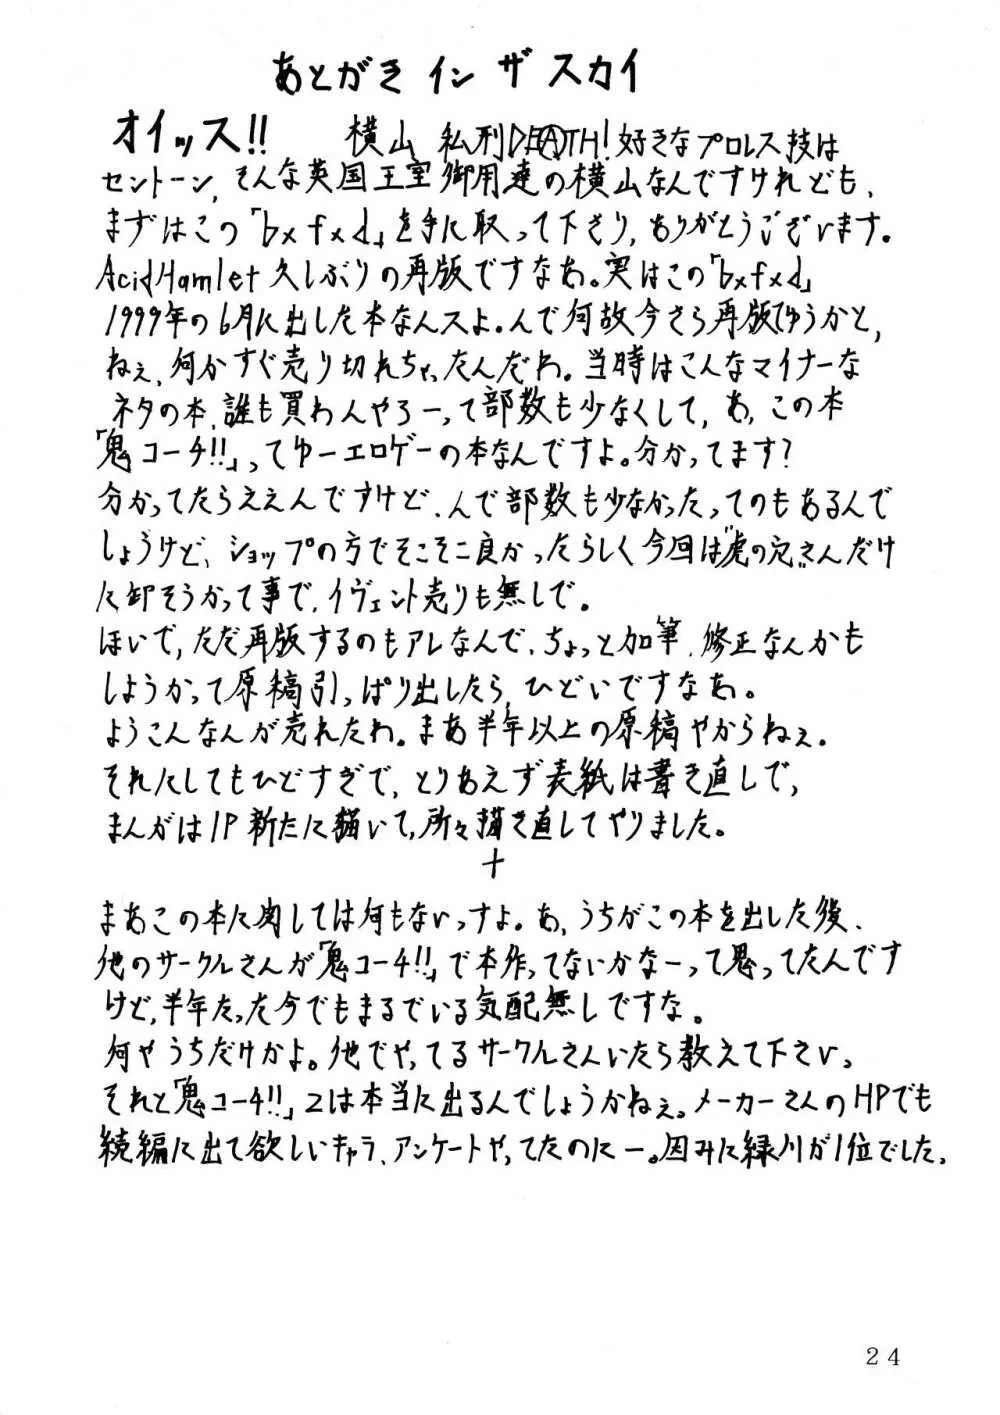 あとがき イン ザ スカイ
オイッス!! 横山 私刑DEATH! 好きなプロレス技は
セントーン, そんな英国王室御用達の横山なんですけれども、
まずはこの「bxfxd」を手に取って下さり, ありがとうございます。
AcidHamlet 久しぶりの再版ですなあ。実はこの「bxfxd」
1999年の6月に出した本なんスよ。んで何故今さら再版でゆうかと,
ねぇ、何かすぐ売り切れちゃったんだわ。当時はこんなマイナーな
ネタの本、誰も買わんやろーって部数も少なくして, あ、この本
「鬼コーチ!!」ってゆーエロゲーの本なんですよ。分かってます?
分かってたらええんですけど、んで部数も少なかったってのもあるんで
しょうけど、ショップの方でそこそこ良かったらしく今回は"虎の穴"さんだけ
に卸そうかって事で、イヴェント売りも無しで。
ほいで, ただ再版するのもアレなんで、ちょっと加筆、修正なんかも
しようかって原稿引っぱり出したら, ひどいですなあ。
ようこんなんが売れたわ。まあ半年以上の原稿やからねぇ。
それにしてもひどすぎで, とりあえず表紙は書き直しで,
まんがは1P新たに描いて, 所々描き直してやりました。
+
まあこの本に関しては何もないっすよ。あ, うちがこの本を出した後、
他のサークルさんが「鬼コーチ!!」で本作ってないかなーって思ってたんです
けど, 半年たった今でもまるでいる気配無しですな。
何やうちだけかよ。他でやってるサークルさんいたら教えて下さい。
それと「鬼コーチ!!」2は本当に出るんでしょうかねぇ。メーカーさんのHPでも
続編に出て欲しいキャラ、アンケートやってたのにー。因みに緑川が1位でした。
24